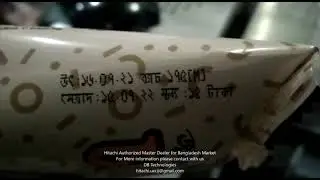 উৎ:১৬.০৭.২১ ব্যাচ ১৭৫(M)
মেয়াদ:১৫.০৭.২২ মূল্য :১৫ টাকা
Hitachi Authorized Master Dealer for Bangladesh Market
For More information please contact with us
DB Technologies
hitachi.uact@gmail.com